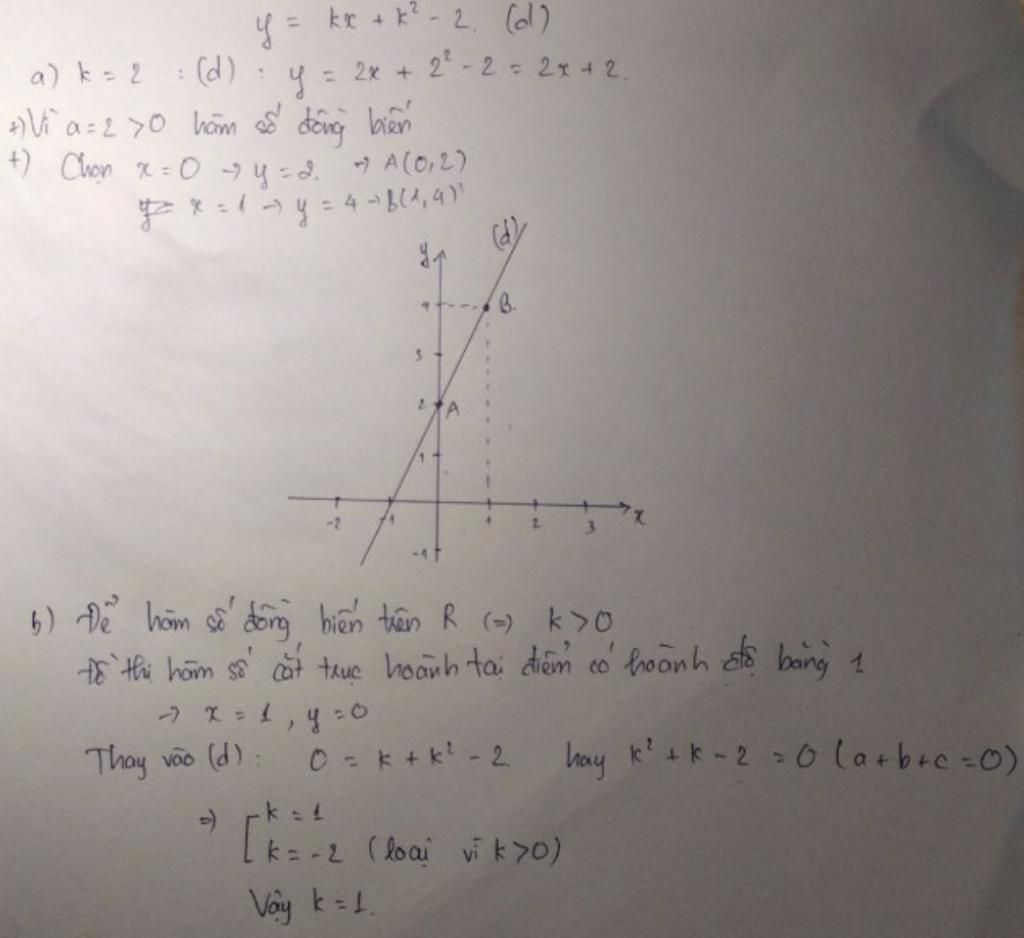 y = kx + k² - 2. (d)
a) k = 2 : (d) : y = 2x + 2² - 2 = 2x + 2.
+) Vì a = 2 > 0 hàm số đồng biến
+) Chọn x = 0 → y = 2. → A(0,2)
x = 1 → y = 4 → B(1,4)
(d)
y
4 B.
3
2 A
1
-2 -1 1 2 3 x
-1
b) Để hàm số đồng biến trên R (=) k > 0
Đồ thị hàm số cắt trục hoành tại điểm có hoành độ bằng 1
→ x = 1, y = 0
Thay vào (d): 0 = k + k² - 2. hay k² + k - 2 = 0 (a + b + c = 0)
=) [ k = 1
k = -2 (loại vì k > 0)
Vậy k = 1.